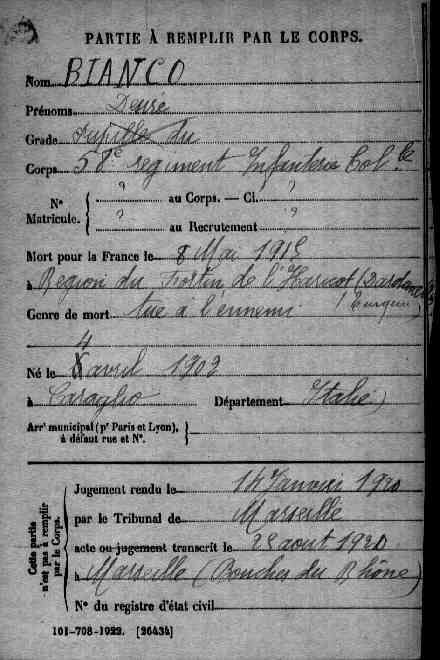 PARTIE À REMPLIR PAR LE CORPS.
Nom BIANCO
Prénoms Désiré
Grade Pupille du
Corps 58e régiment Infanterie Col.le
N° Matricule. { ? au Corps. — Cl. ?
? au Recrutement ?
Mort pour la France le 8 Mai 1915
à Région du Fortin de l'Haricot (Dardanelles
Genre de mort tué à l'ennemi (Turquie)
4
Né le avril 1902
à Caraglio Département Italie)
Arrt municipal (pr Paris et Lyon),
à défaut rue et N°.
Cette partie n'est pas à remplir par le Corps.
Jugement rendu le 14 Janvier 1920
par le Tribunal de Marseille
acte ou jugement transcrit le 28 août 1920
à Marseille (Bouches du Rhône)
N° du registre d'état civil
101-708-1922. [26434]